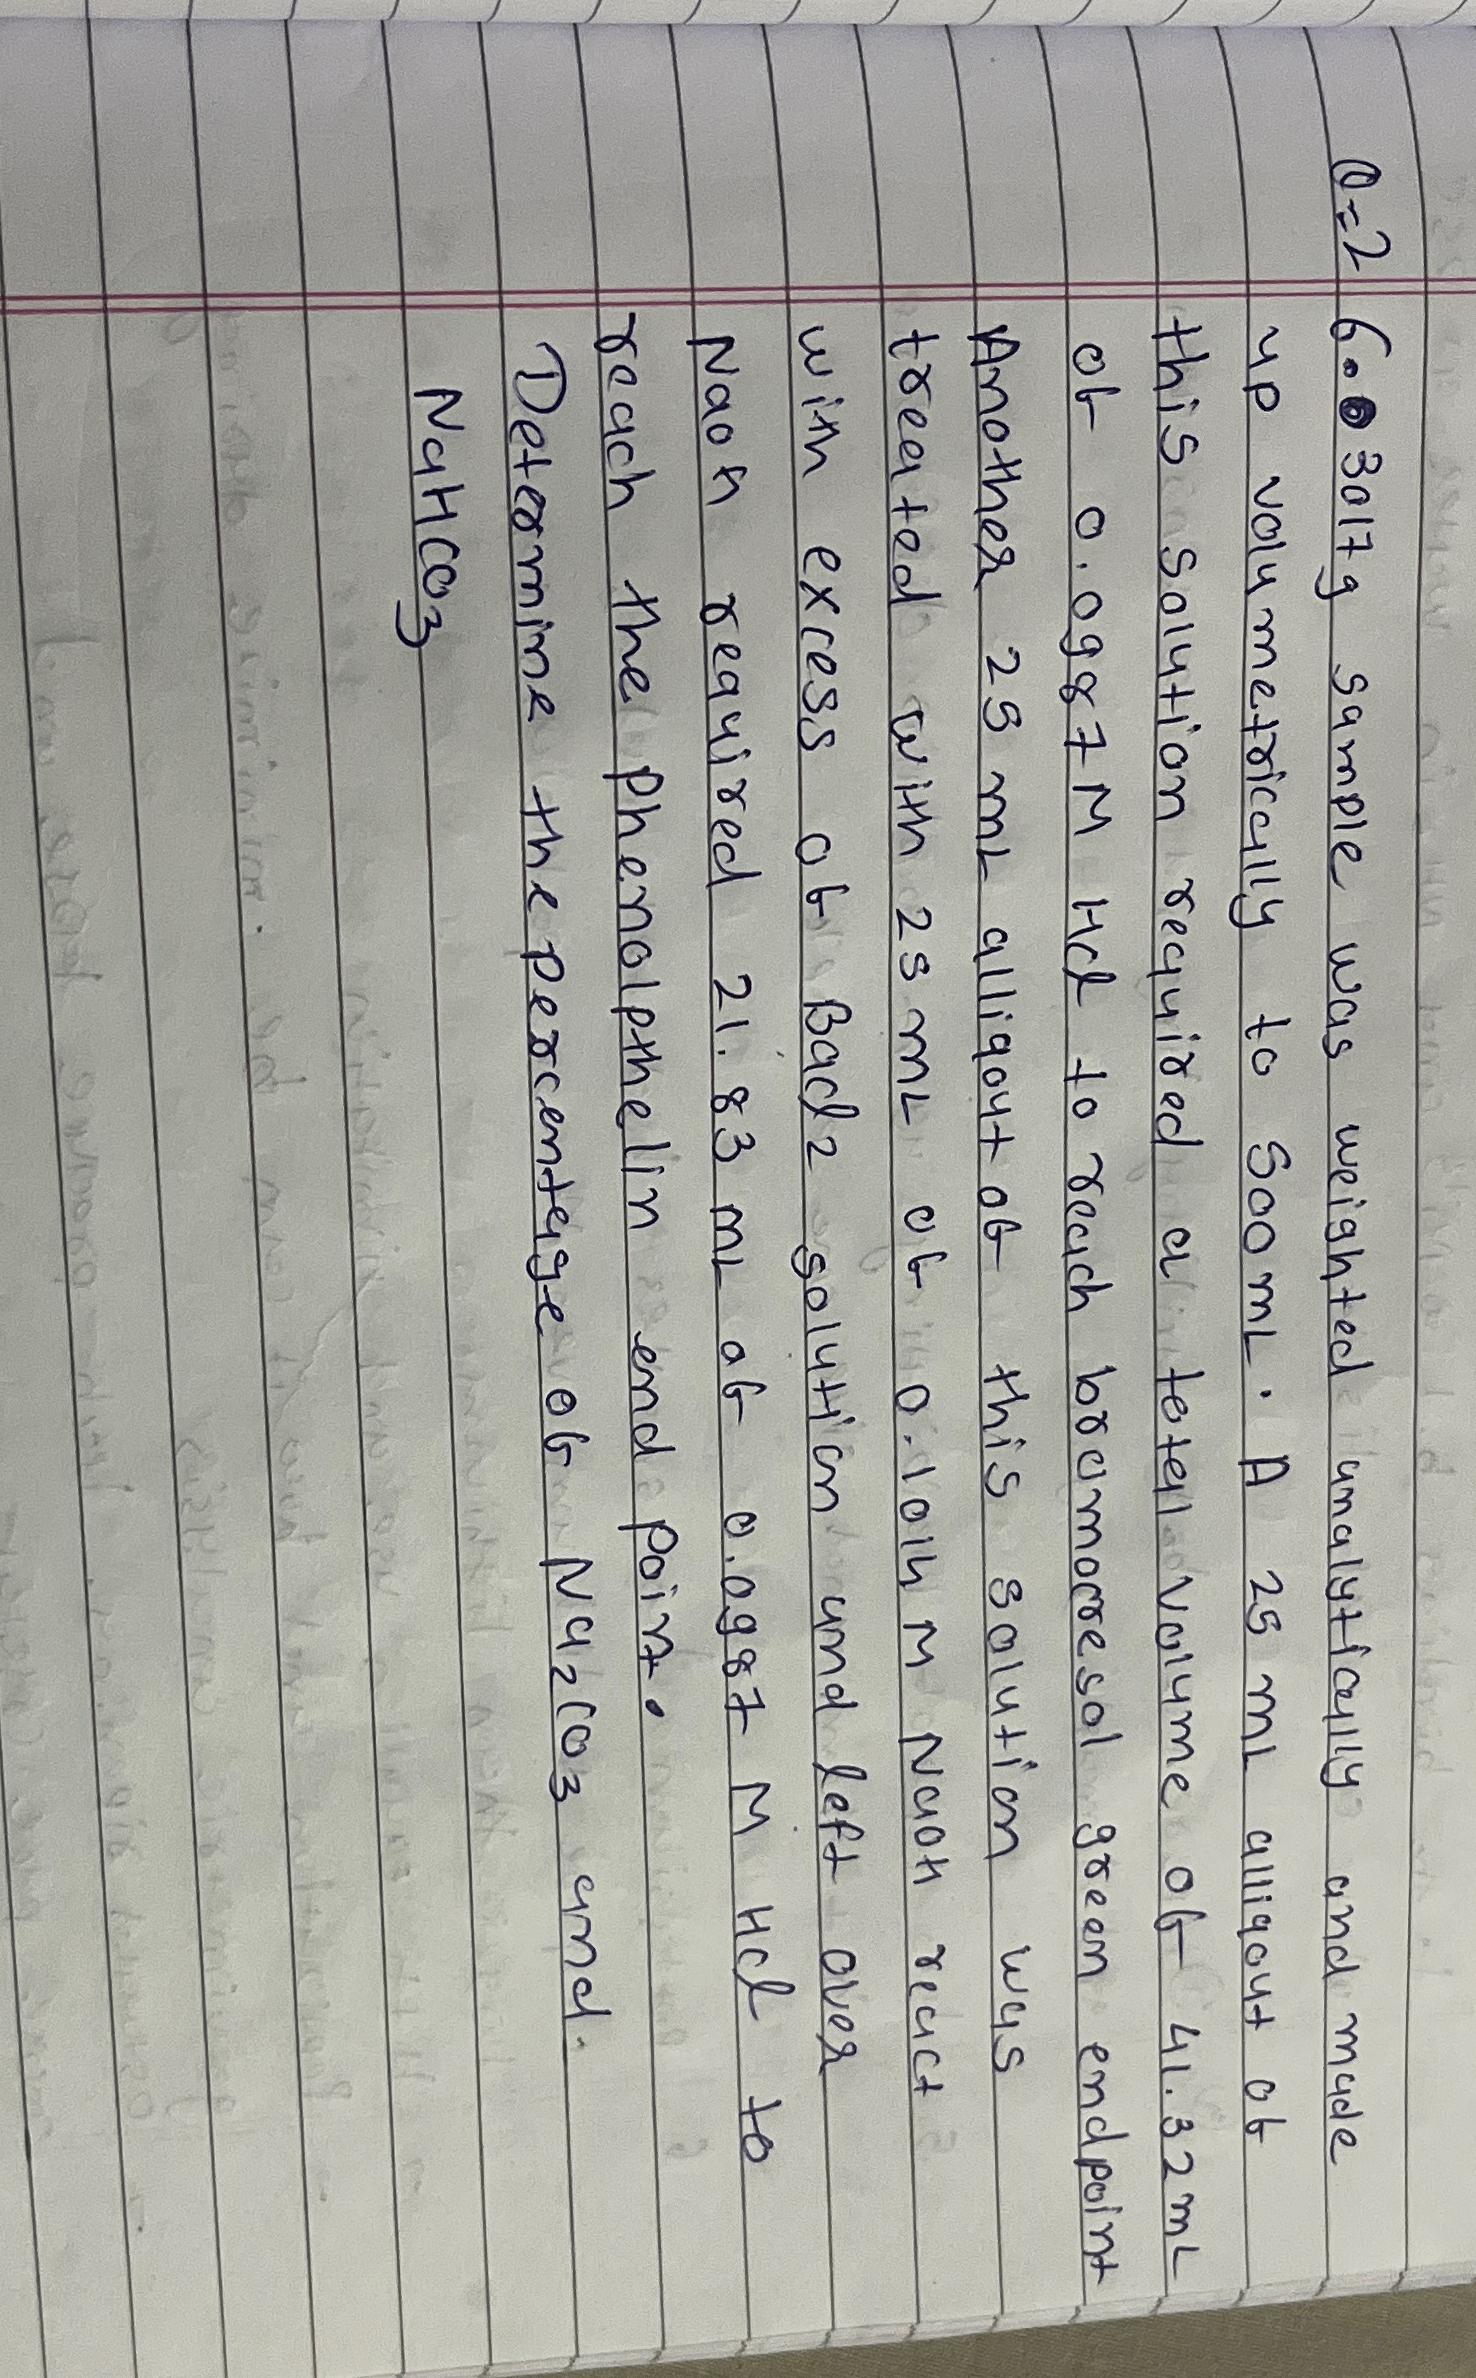 Q-2 6.3017g sample was weighted analytically and made
up volumetrically to 500 mL. A 25 mL alliqout of
this solution required a total volume of 41.32 mL
of 0.0987 M Hcl to reach bromocresol green endpoint
Another 25 mL alliqout of this solution was
treated with 25 mL of 0.1014 M NaOH react
with excess of Bacl2 solution and left over
NaOH required 21.83 mL of 0.0987 M Hcl to
reach the phenolpthelin end point.
Determine the percentage of Na2CO3 and
NaHCO3